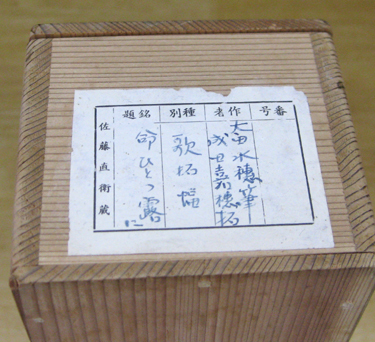 番号
作者
太田水穂筆
成田嘉穂拓
種別
歌拓
銘題
命ひとつ露に
佐藤直衛蔵